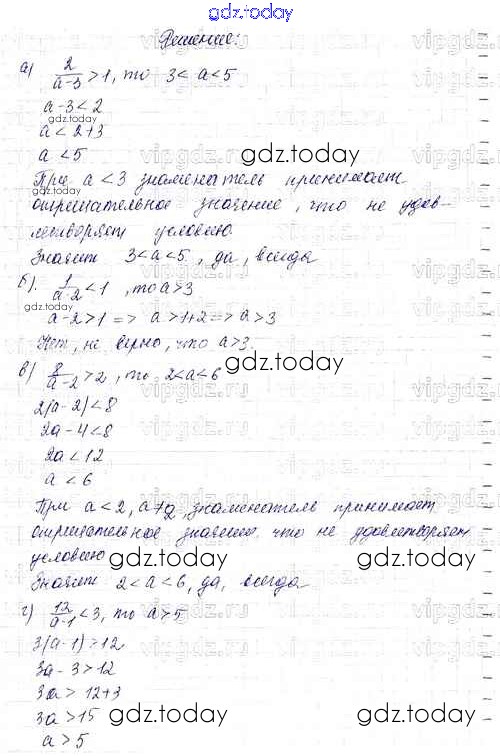 gdz.today
Решение:
а) 2/(a-3) > 1, то 3 < a < 5
a-3 < 2
a < 2+3
a < 5
gdz.today
gdz.today
При a < 3 знаменатель принимает
отрицательное значение, что не удов-
летворяет условию
Значит 3 < a < 5, да, всегда
б). 1/(a-2) < 1, то a > 3
gdz.today
a-2 > 1 => a > 1+2 => a > 3
Нет, не верно, что a > 3.
gdz.today
в) 8/(a-2) > 2, то 2 < a < 6
2(a-2) < 8
2a-4 < 8
2a < 12
a < 6
gdz.today
gdz.today
При a < 2, a ≠ 2, знаменатель принимает
отрицательное значение, что не удовлетворяет
условию
gdz.today
Значит 2 < a < 6, да, всегда
г) 12/(a-1) < 3, то a > 5
3(a-1) > 12
3a-3 > 12
3a > 12+3
3a > 15
gdz.today
gdz.today
a > 5